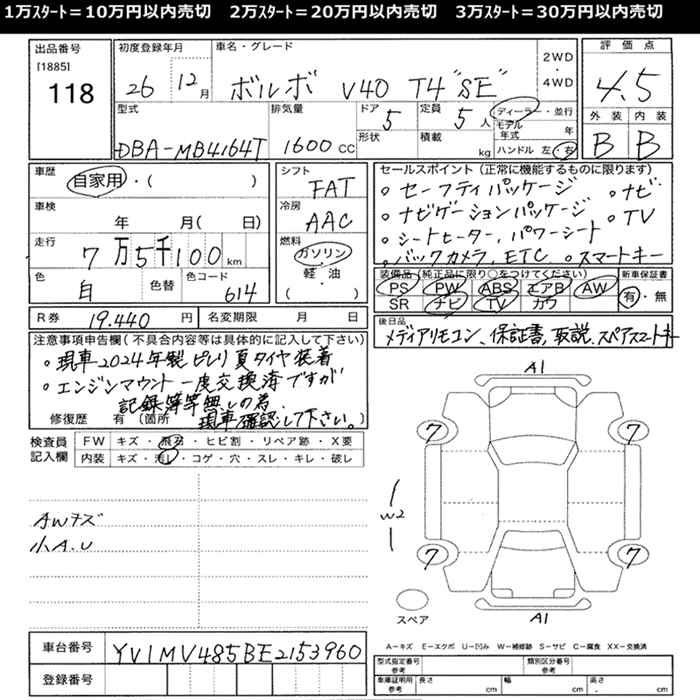 1万ｽﾀｰﾄ＝10万円以内売切　2万ｽﾀｰﾄ＝20万円以内売切　3万ｽﾀｰﾄ＝30万円以内売切
出品番号
[1885]
118
初度登録年月
26 年 12 月
車名・グレード
ボルボ V40 T4 "SE"
2WD
・
4WD
評価点
4.5
外装 内装
B B
型式
DBA-MB4164T
排気量
1600 CC
ドア
5
形状
定員
5 人
積載
kg
ディーラー・並行
モデル年式 年
ハンドル 左・右
車歴
自家用・( )
車検
年 月( 日)
走行
7万5千100 km
色
白
色替
色コード
614
シフト
FAT
冷房
AAC
燃料
ガソリン
・
軽・油
( )
セールスポイント（正常に機能するものに限ります）
◦セーフティパッケージ ◦ナビ
◦ナビゲーションパッケージ ◦TV
◦シートヒーター、パワーシート
◦バックカメラ、ETC ◦スマートキー
装備品（純正品に限り○をつけてください）
PS PW ABS エアB AW
SR ナビ TV カワ
新車保証書
有・無
R券 19.440 円
名変期限 月 日
後日品
メディアリモコン、保証書,取説,スペアスマートキー
注意事項申告欄(不具合内容等は具体的に記入して下さい)
◦現車2024年製ピレリ夏タイヤ装着
◦エンジンマウント一度交換済ですが
記録簿等無しの為、
修復歴 有 (箇所 現車確認して下さい。
検査員記入欄
FW キズ・飛石・ヒビ割・リペア跡・X要
内装 キズ・汚レ・コゲ・穴・スレ・キレ・破レ
AWキズ
小A.U
A1
7 7
W2
7 7
A1
スペア
A－キズ E－エクボ U－凹み W－補修跡 S－サビ C－腐食 XX－交換済
車台番号 YV1MV485BE2153960
登録番号
型式指定番号 参考
類別区分番号 参考
車庫証明用 参考
長さ cm 幅 cm 高さ cm